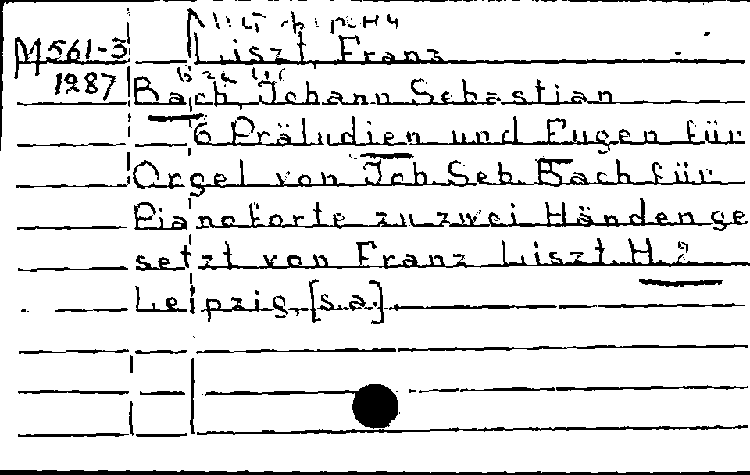 Liszt, Franz
M561-3
1287
Bach, Johann Sebastian
6 Präludien und Fugen für
Orgel von Joh. Seb. Bach für
Pianoforte zu zwei Händen ge
setzt von Franz Liszt. H. 2
Leipzig, [s.a.].